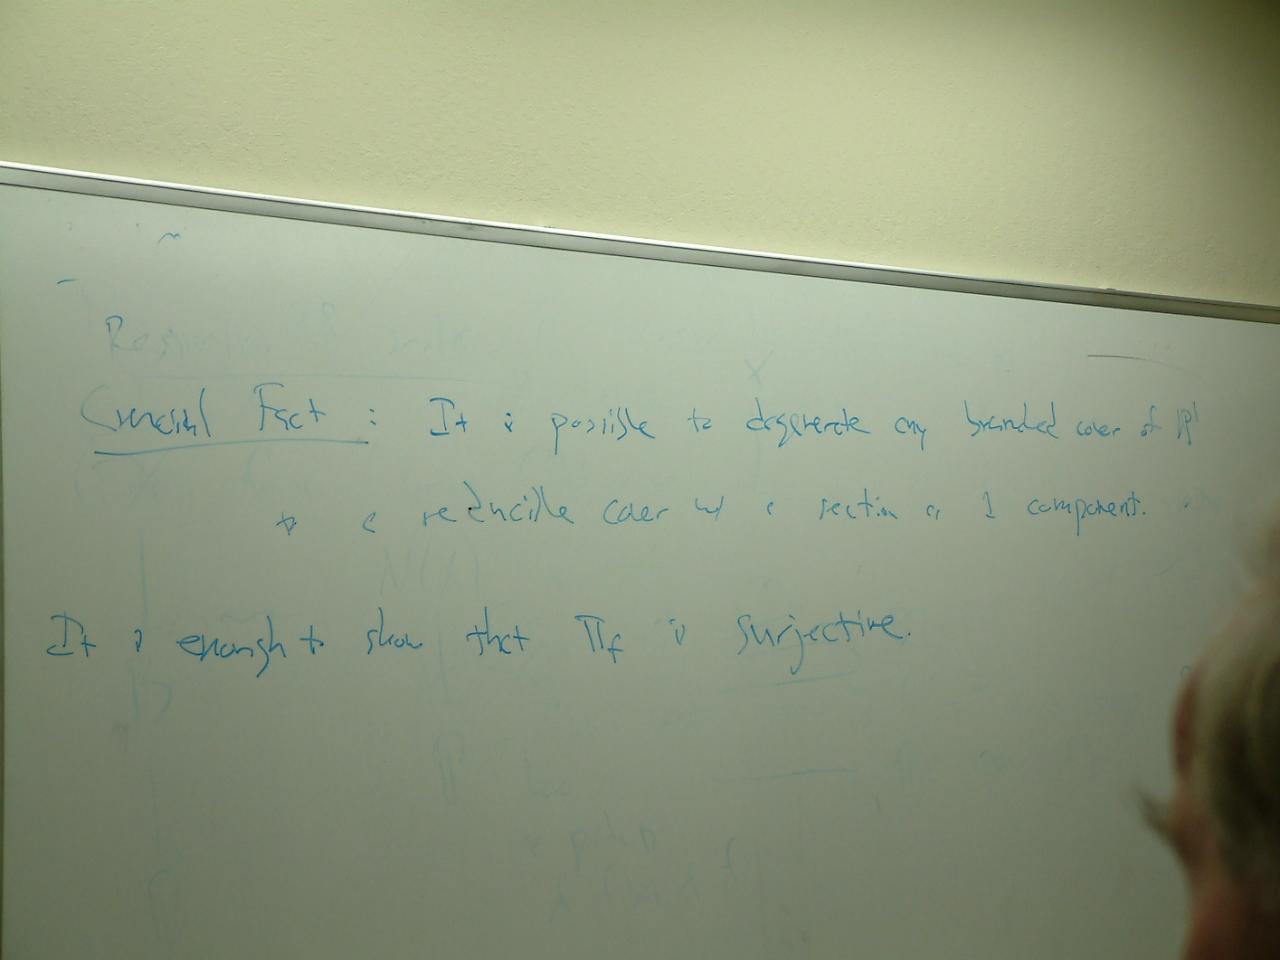 Crucial Fact : It is possible to degenerate any branched cover of ℙ¹
to a reducible cover w/ a section as 1 component.
It is enough to show that π_f is surjective.